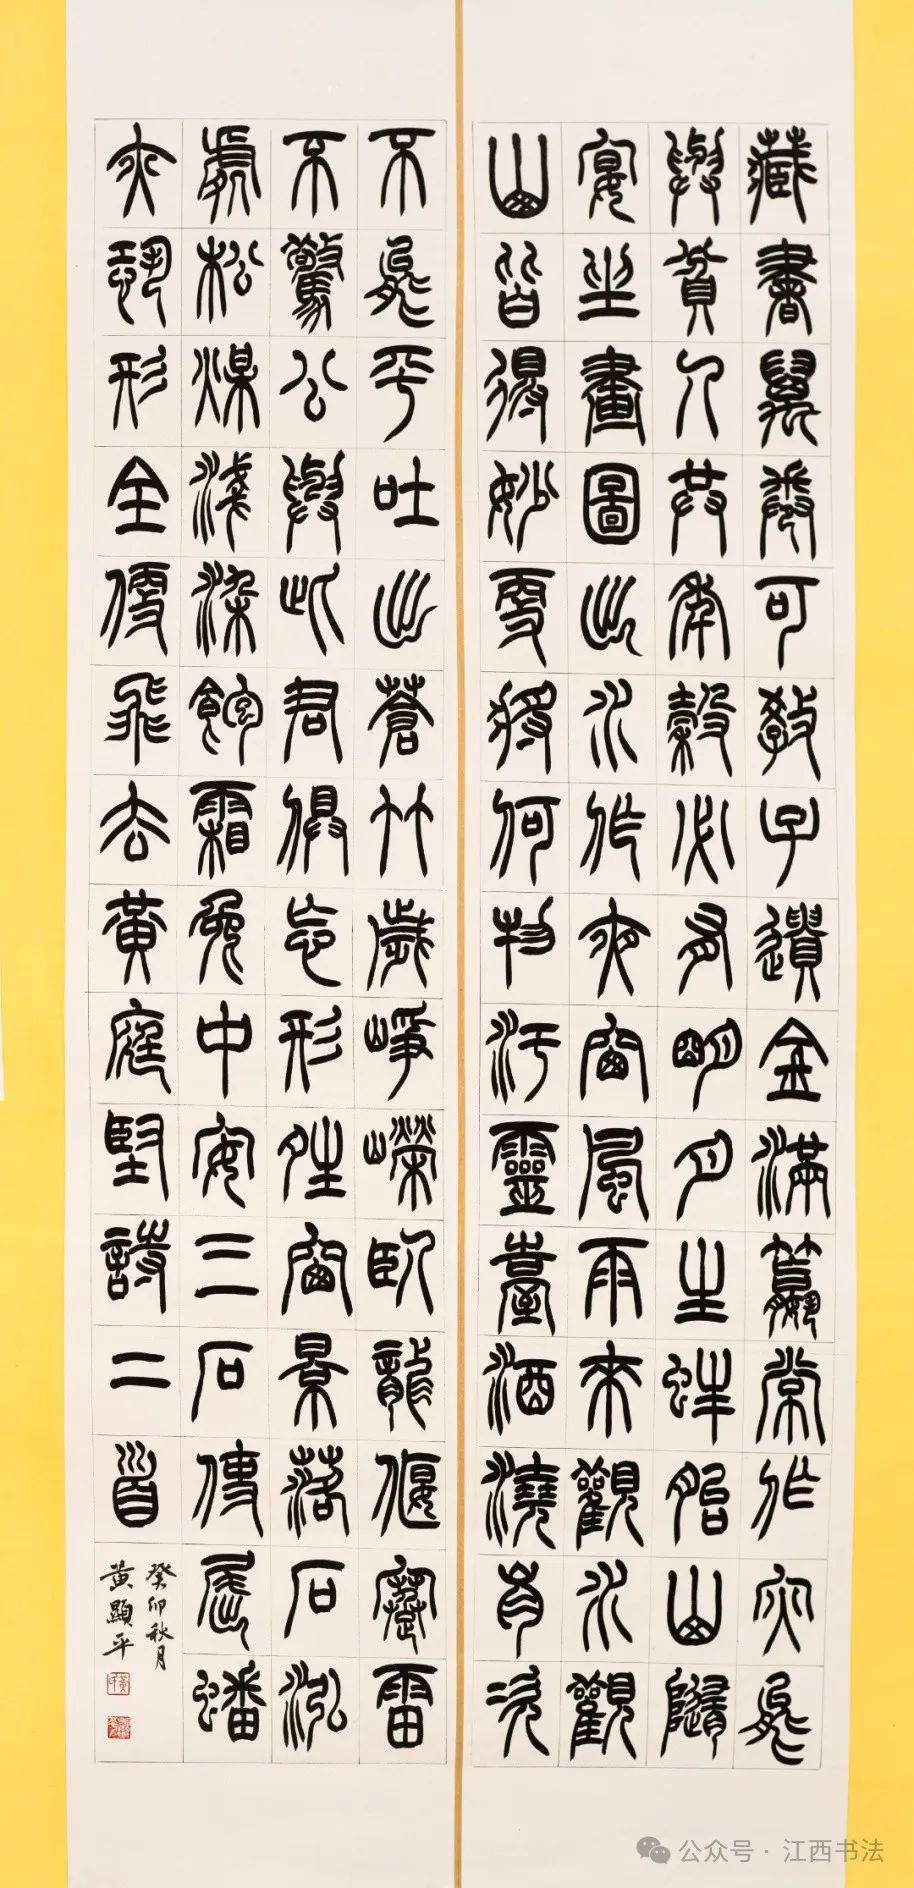 藏書萬卷可教子遺金滿籯常作灾能
與貧人共年穀必有明月生蚌胎山隨
宴坐畫圖出水作夜窗風雨來觀水觀
山皆得妙更將何物汙靈臺酒澆胷次
不能平吐出蒼竹歲崢嶸臥龍偃蹇雷
不驚公與此君俱忘形晴窗景落石泓
處松煤淺染飽霜兔中安三石使屈蟠
亦恐形全便飛去黃庭堅詩二首
癸卯秋月
黃顯平
公众号·江西书法